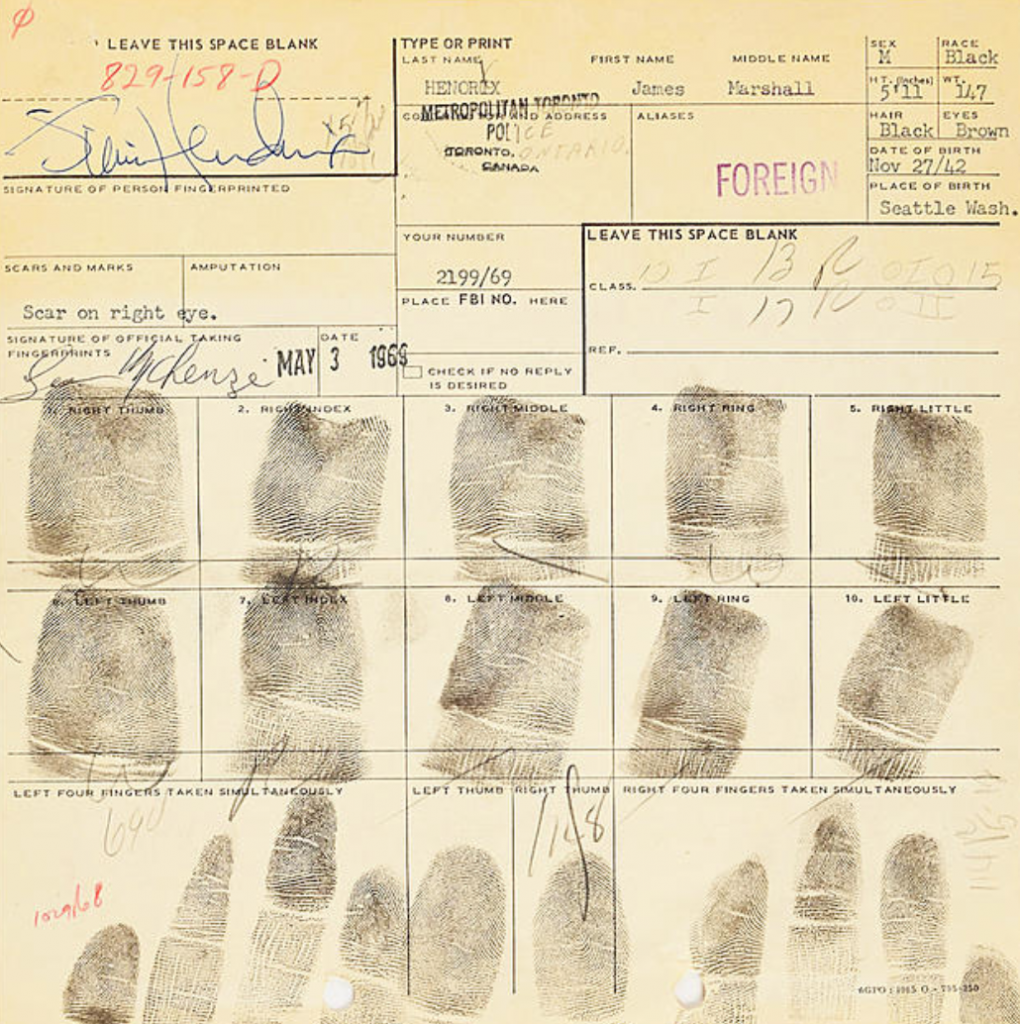 LEAVE THIS SPACE BLANK
829-158-D
SIGNATURE OF PERSON FINGERPRINTED
SCARS AND MARKS
AMPUTATION
Scar on right eye.
SIGNATURE OF OFFICIAL TAKING
FINGERPRINTS
McKenzie
DATE
MAY 3 1969
TYPE OR PRINT
LAST NAME
FIRST NAME
MIDDLE NAME
HENDRIX
James
Marshall
METROPOLITAN TORONTO
POLICE
TORONTO, ONTARIO.
CANADA
ALIASES
FOREIGN
SEX
M
RACE
Black
HT. (Inches)
5'11
WT.
147
HAIR
Black
EYES
Brown
DATE OF BIRTH
Nov 27/42
PLACE OF BIRTH
Seattle Wash.
YOUR NUMBER
2199/69
PLACE FBI NO. HERE
CHECK IF NO REPLY
IS DESIRED
LEAVE THIS SPACE BLANK
CLASS.
REF.
1. RIGHT THUMB
2. RIGHT INDEX
3. RIGHT MIDDLE
4. RIGHT RING
5. RIGHT LITTLE
6. LEFT THUMB
7. LEFT INDEX
8. LEFT MIDDLE
9. LEFT RING
10. LEFT LITTLE
LEFT FOUR FINGERS TAKEN SIMULTANEOUSLY
LEFT THUMB
RIGHT THUMB
RIGHT FOUR FINGERS TAKEN SIMULTANEOUSLY